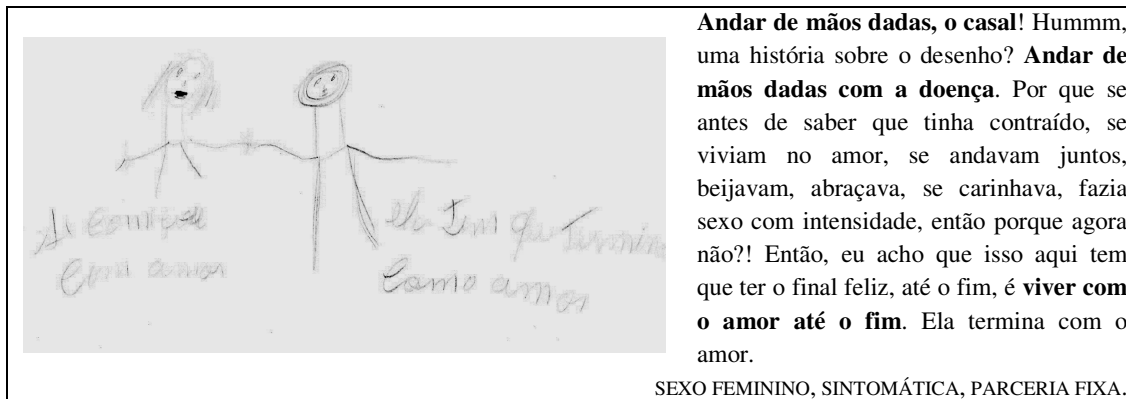 Andar de mãos dadas, o casal! Hummm,
uma história sobre o desenho? Andar de
mãos dadas com a doença. Por que se
antes de saber que tinha contraído, se
viviam no amor, se andavam juntos,
beijavam, abraçava, se carinhava, fazia
sexo com intensidade, então porque agora
não?! Então, eu acho que isso aqui tem
que ter o final feliz, até o fim, é viver com
o amor até o fim. Ela termina com o
amor.
SEXO FEMININO, SINTOMÁTICA, PARCERIA FIXA.
com amor
Ela Tem que Termina
Como amor